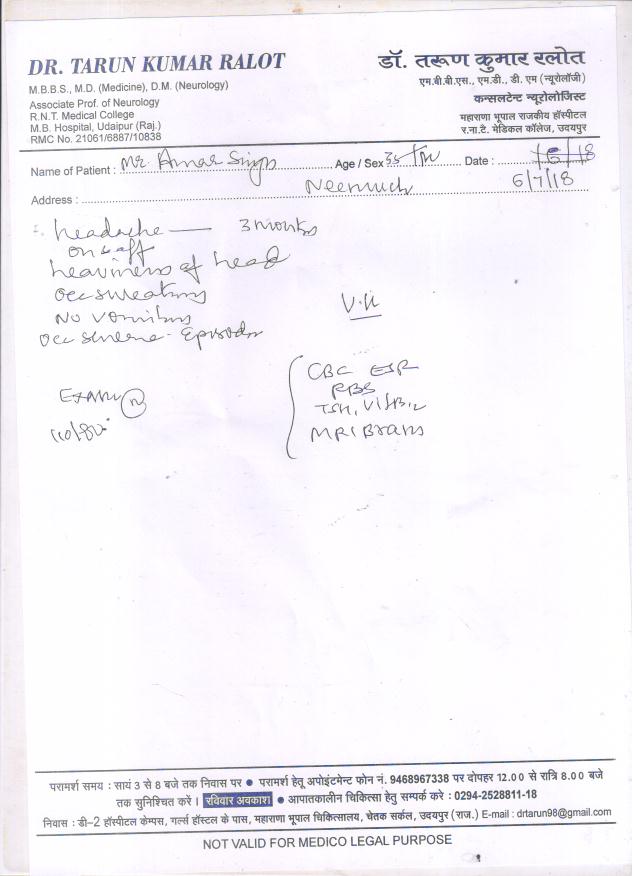 DR. TARUN KUMAR RALOT
M.B.B.S., M.D. (Medicine), D.M. (Neurology)
Associate Prof. of Neurology
R.N.T. Medical College
M.B. Hospital, Udaipur (Raj.)
RMC No. 21061/6887/10838
डॉ. तरूण कुमार रलोत
एम.बी.बी.एस., एम.डी., डी. एम (न्यूरोलॉजी)
कन्सलटेन्ट न्यूरोलोजिस्ट
महाराणा भूपाल राजकीय हॉस्पीटल
र.ना.टै. मेडिकल कॉलेज, उदयपुर
Name of Patient : Mr. Amar Singh Age / Sex 35 / M Date :
Address : Neemuch 6/7/18
headache — 3 months
on & off
heaviness of head
occ sweating
No vomiting
occ Episodes
Exam (N)
110/80
CBC ESR
RBS
TSH, Vit B12
MRI Brain
परामर्श समय : सायं 3 से 8 बजे तक निवास पर ● परामर्श हेतु अपोइंटमेन्ट फोन नं. 9468967338 पर दोपहर 12.00 से रात्रि 8.00 बजे
तक सुनिश्चित करें । रविवार अवकाश ● आपातकालीन चिकित्सा हेतु सम्पर्क करे : 0294-2528811-18
निवास : डी-2 हॉस्पीटल केम्पस, गर्ल्स हॉस्टल के पास, महाराणा भूपाल चिकित्सालय, चेतक सर्कल, उदयपुर (राज.) E-mail : drtarun98@gmail.com
NOT VALID FOR MEDICO LEGAL PURPOSE